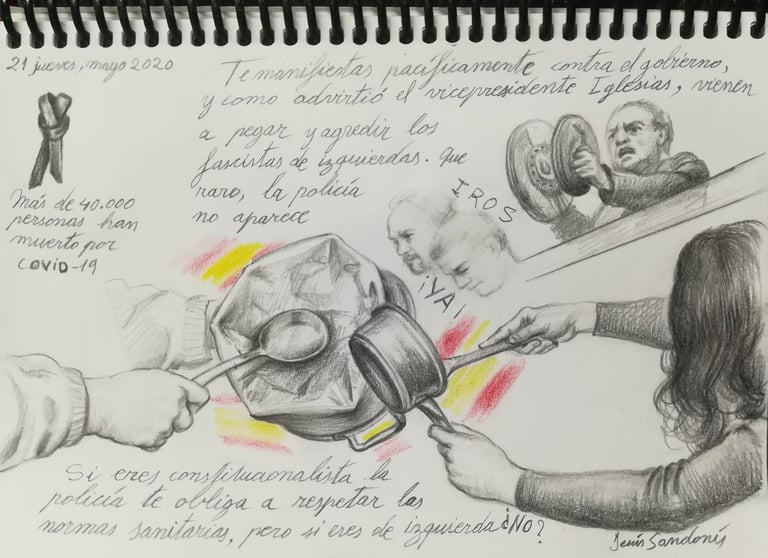 21 jueves, mayo 2020
Te manifiestas pacíficamente contra el gobierno,
y como advirtió el vicepresidente Iglesias, vienen
a pegar y agredir los
fascistas de izquierdas. Que
raro, la policía
no aparece
Más de 40.000
personas han
muerto por
COVID-19
IROS
¡YA!
Si eres constitucionalista la
policía te obliga a respetar las
normas sanitarias, pero si eres de izquierda ¿NO?
Jesús Sandonís